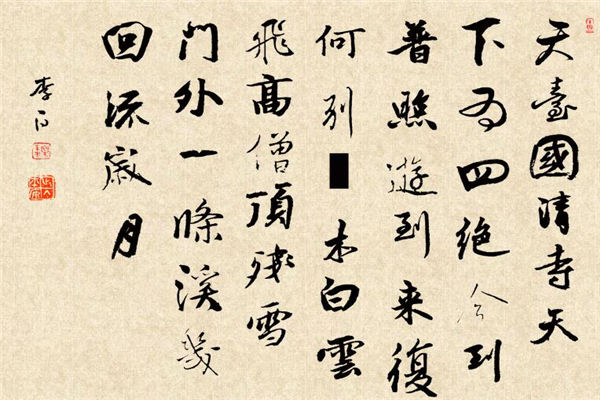 天臺國清寺天
下為四絕今到
普照遊到來復
何別木白雲
飛高僧頂殘雪
門外一條溪幾
回流歲月
李白